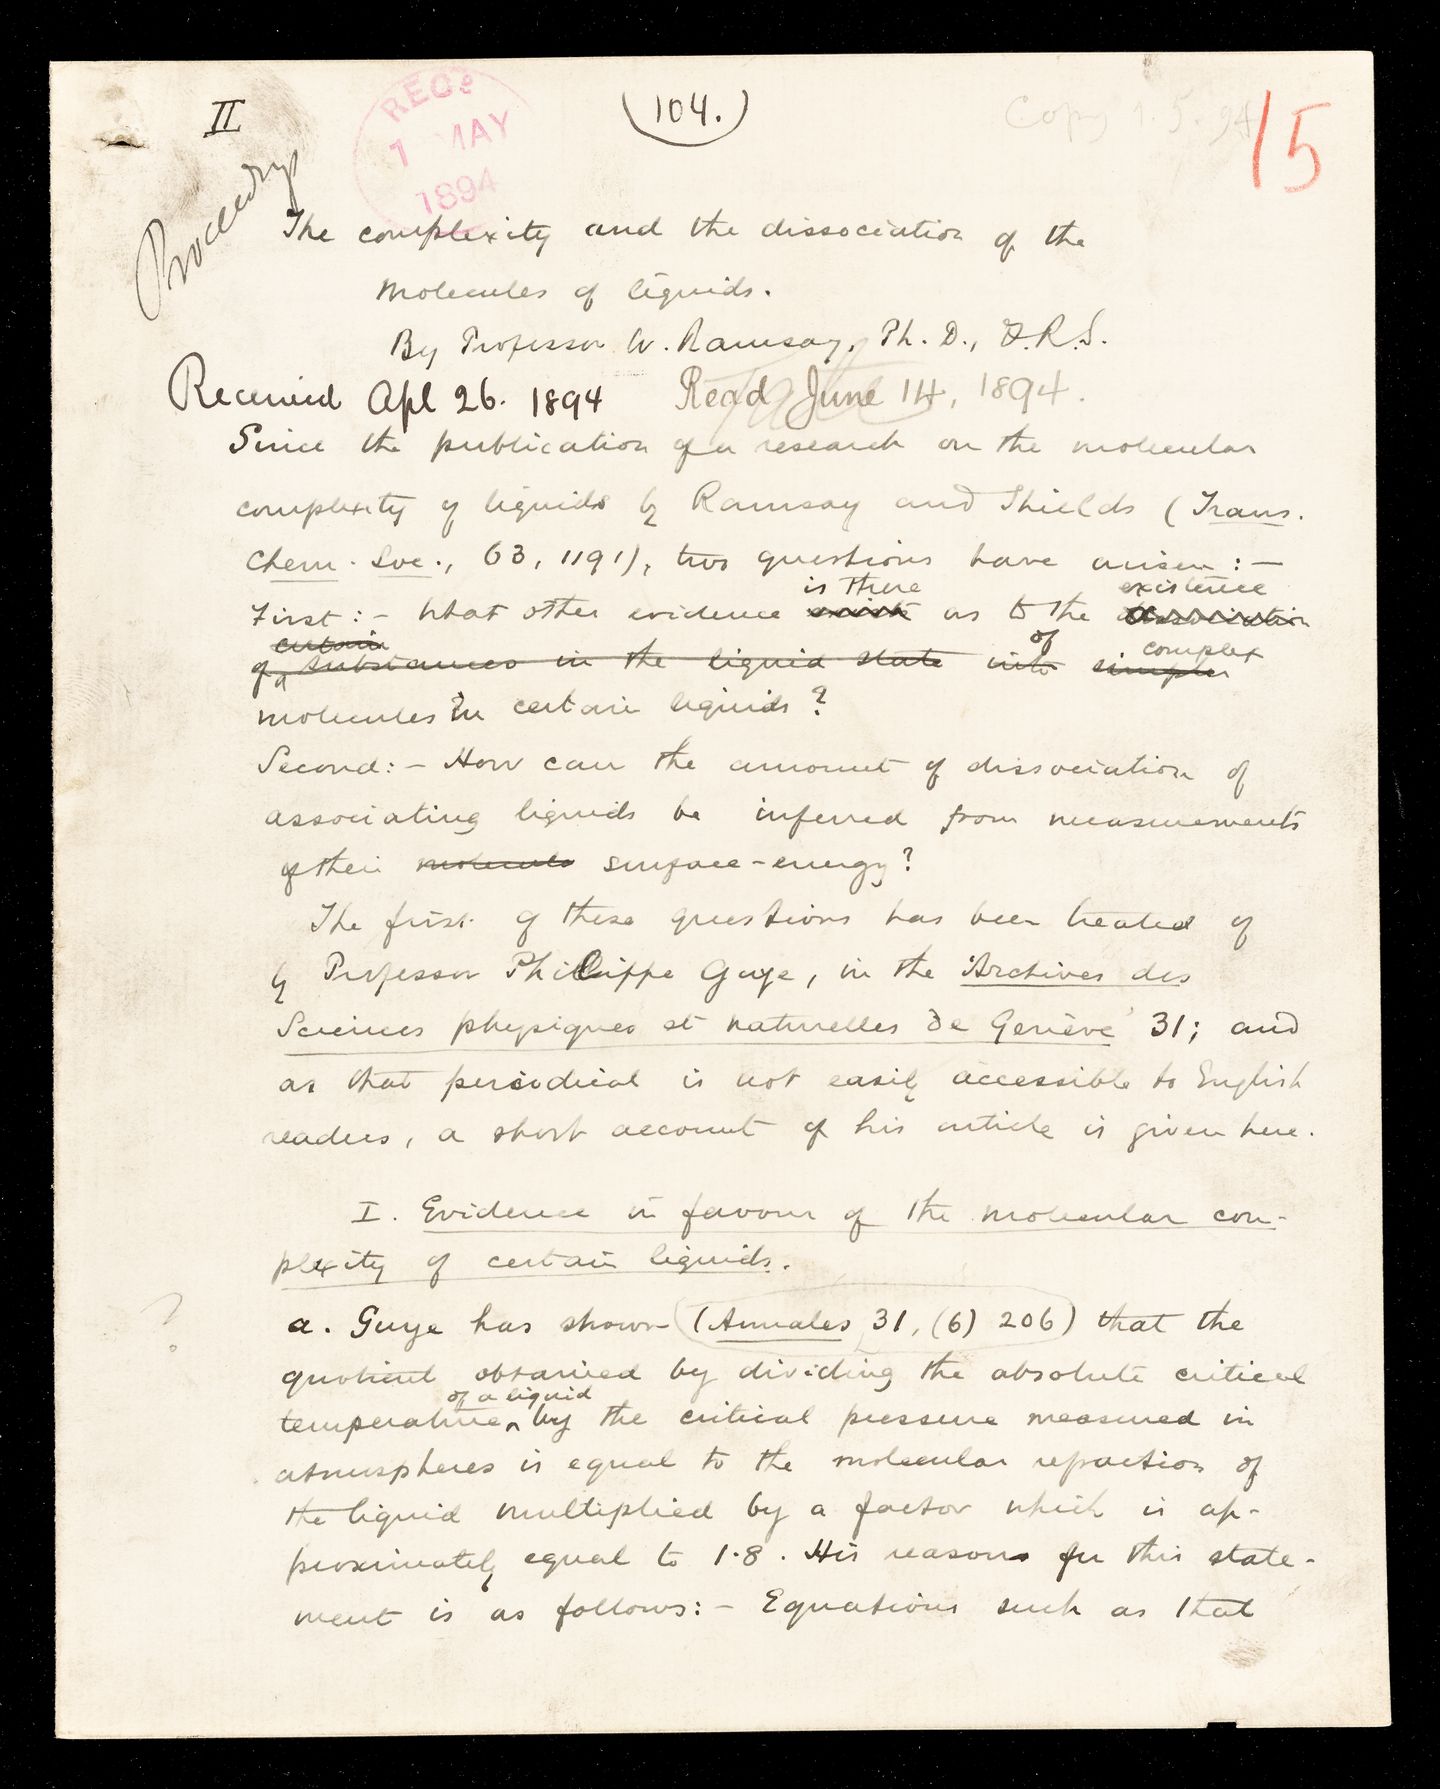 II
(104.)
Copy 1.5.94
15
RECD
1 MAY
1894
Proceedings
The complexity and the dissociation of the
molecules of liquids.
By Professor W. Ramsay, Ph. D., F.R.S.
Received Apl 26. 1894 Read June 14, 1894.
Since the publication of a research on the molecular
complexity of liquids by Ramsay and Shields (Trans.
Chem. Soc., 63, 1191), two questions have arisen:—
is there existence
First:- What other evidence exists as to the dissociation
certain of complex
of substances in the liquid state into simpler
molecules in certain liquids?
Second:- How can the amount of dissociation of
associating liquids be inferred from measurements
of their molecule surface-energy?
The first of these questions has been treated of
by Professor Phillippe Guye, in the 'Archives des
Sciences physiques et naturelles de Genève' 31; and
as that periodical is not easily accessible to English
readers, a short account of his article is given here.
I. Evidence in favour of the molecular com-
plexity of certain liquids.
?
a. Guye has shown (Annales 31, (6) 206) that the
quotient obtained by dividing the absolute critical
of a liquid
temperature ^ by the critical pressure measured in
atmospheres is equal to the molecular refraction of
the liquid multiplied by a factor which is ap-
proximately equal to 1.8. His reasons for this state-
ment is as follows:- Equations such as that